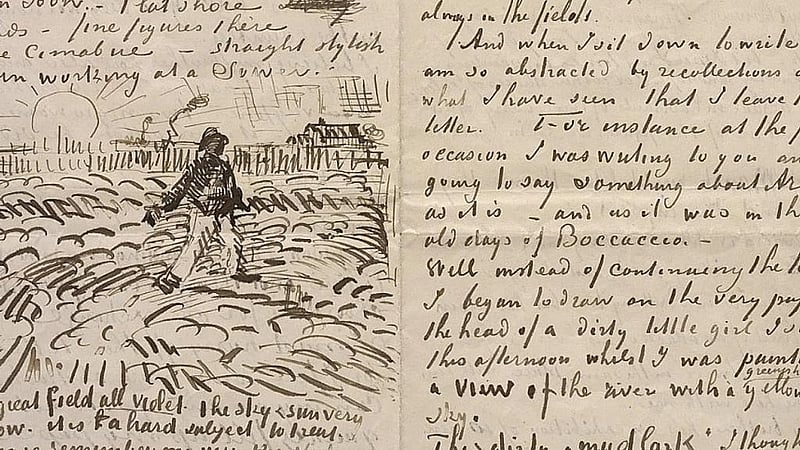 soon. - That shore
- fine figures there
Cimabue - straight stylish
working at a Sower.
great field all violet the sky & sun very
it is a hard subject to treat
always in the fields.
And when I sit down to write
am so abstracted by recollections
what I have seen that I leave
letter. For instance at the
occasion I was writing to you an
going to say something about Ar
as it is - and as it was in th
old days of Boccaccio. -
Well instead of continuing the
I began to draw on the very pap
the head of a dirty little girl I
this afternoon whilst I was paint
greenish
a view of the river with a yellow
sky.
This dirty "mudlark" I though